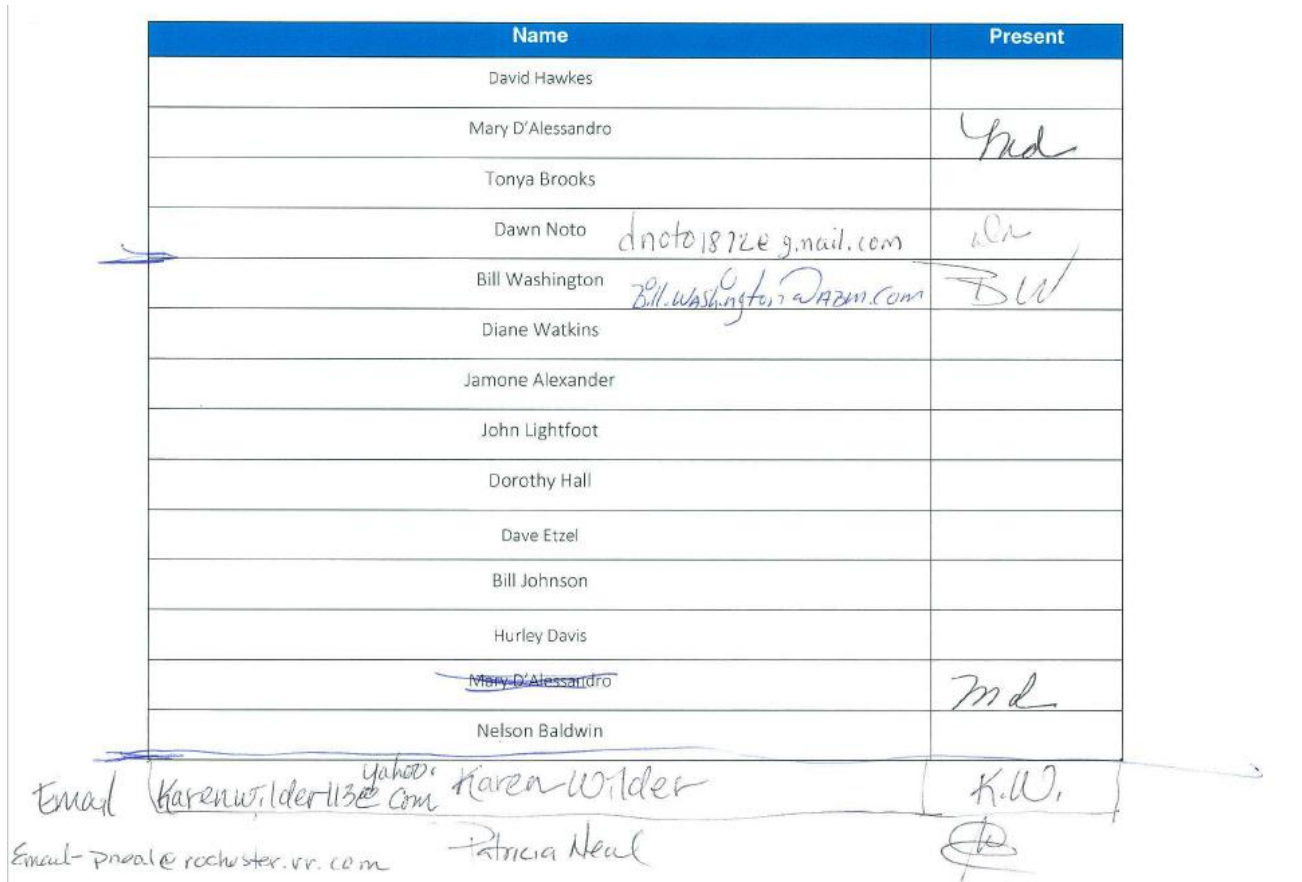 Name Present
David Hawkes
Mary D'Alessandro md
Tonya Brooks
Dawn Noto dnoto1872@gmail.com Dn
Bill Washington Bill.Washington@ABM.com BW
Diane Watkins
Jamone Alexander
John Lightfoot
Dorothy Hall
Dave Etzel
Bill Johnson
Hurley Davis
Mary D'Alessandro md
Nelson Baldwin
Email Karenwilder113@yahoo.com Karen Wilder K.W.
Patricia Neal
Email- pneal@rochester.rr.com